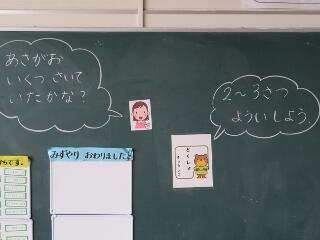 あさがお
いくつ さいて
いたかな?
2～3さつ
よういしよう.
どくしょ
みずやり おわりました
です。